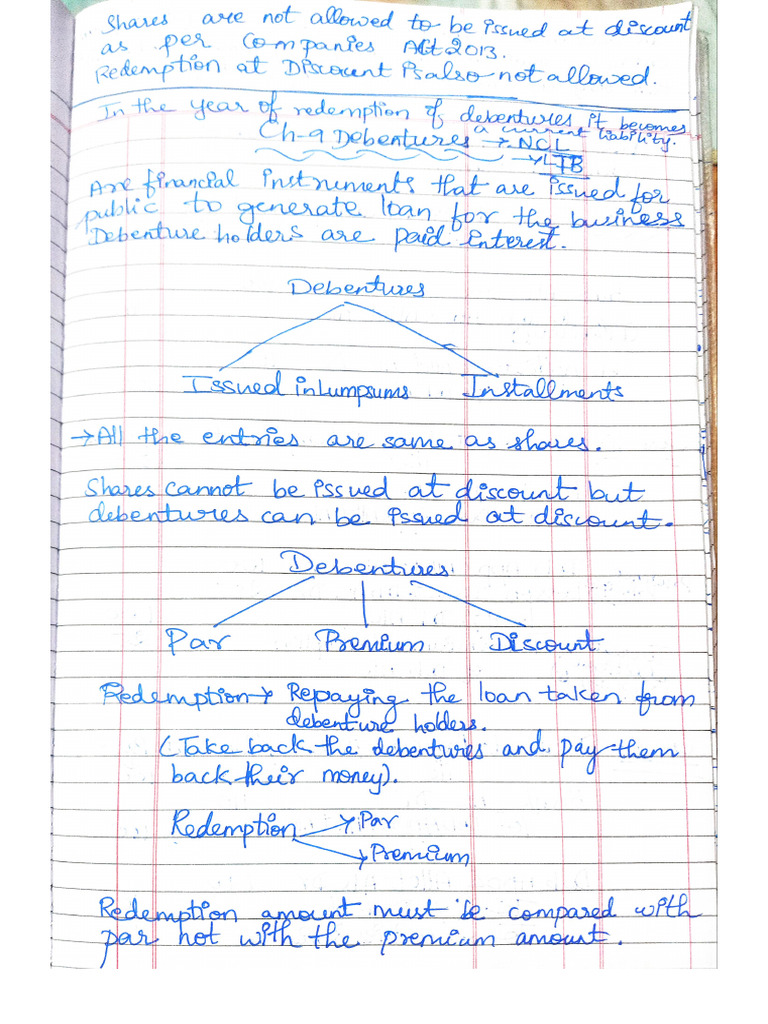 Shares are not allowed to be issued at discount
as per Companies Act 2013.
Redemption at Discount is also not allowed.
In the year of redemption of debentures it becomes
a current liability.
Ch-9 Debentures → NCL
→ LTB
Are financial instruments that are issued for
public to generate loan for the business
Debenture holders are paid interest.
Debentures
Issued in Lumpsums Installments
→ All the entries are same as shares.
Shares cannot be issued at discount but
debentures can be issued at discount.
Debentures
Par Premium Discount
Redemption → Repaying the loan taken from
debenture holders.
(Take back the debentures and pay them
back their money).
Redemption → Par
→ Premium
Redemption amount must be compared with
par not with the premium amount.